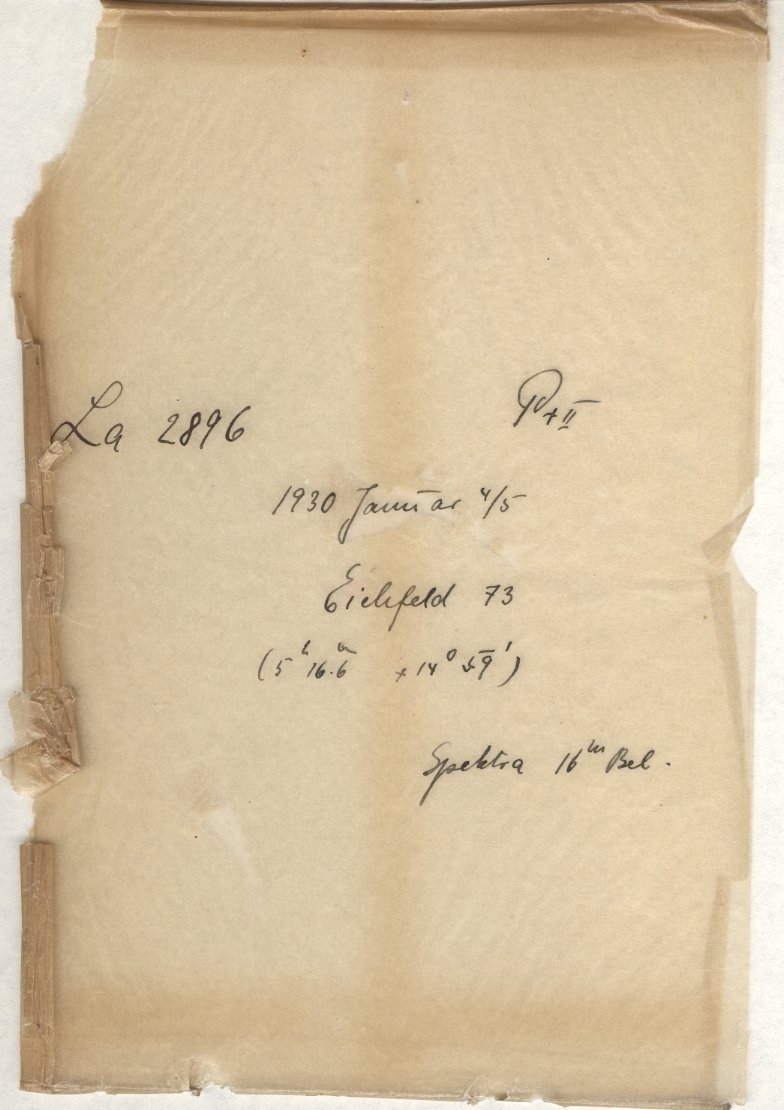 La 2896 P+II
1930 Januar 4/5
Eichfeld 73
(5ʰ 16.6ᵐ +14° 59')
Spektra 16ᵐ Bel.